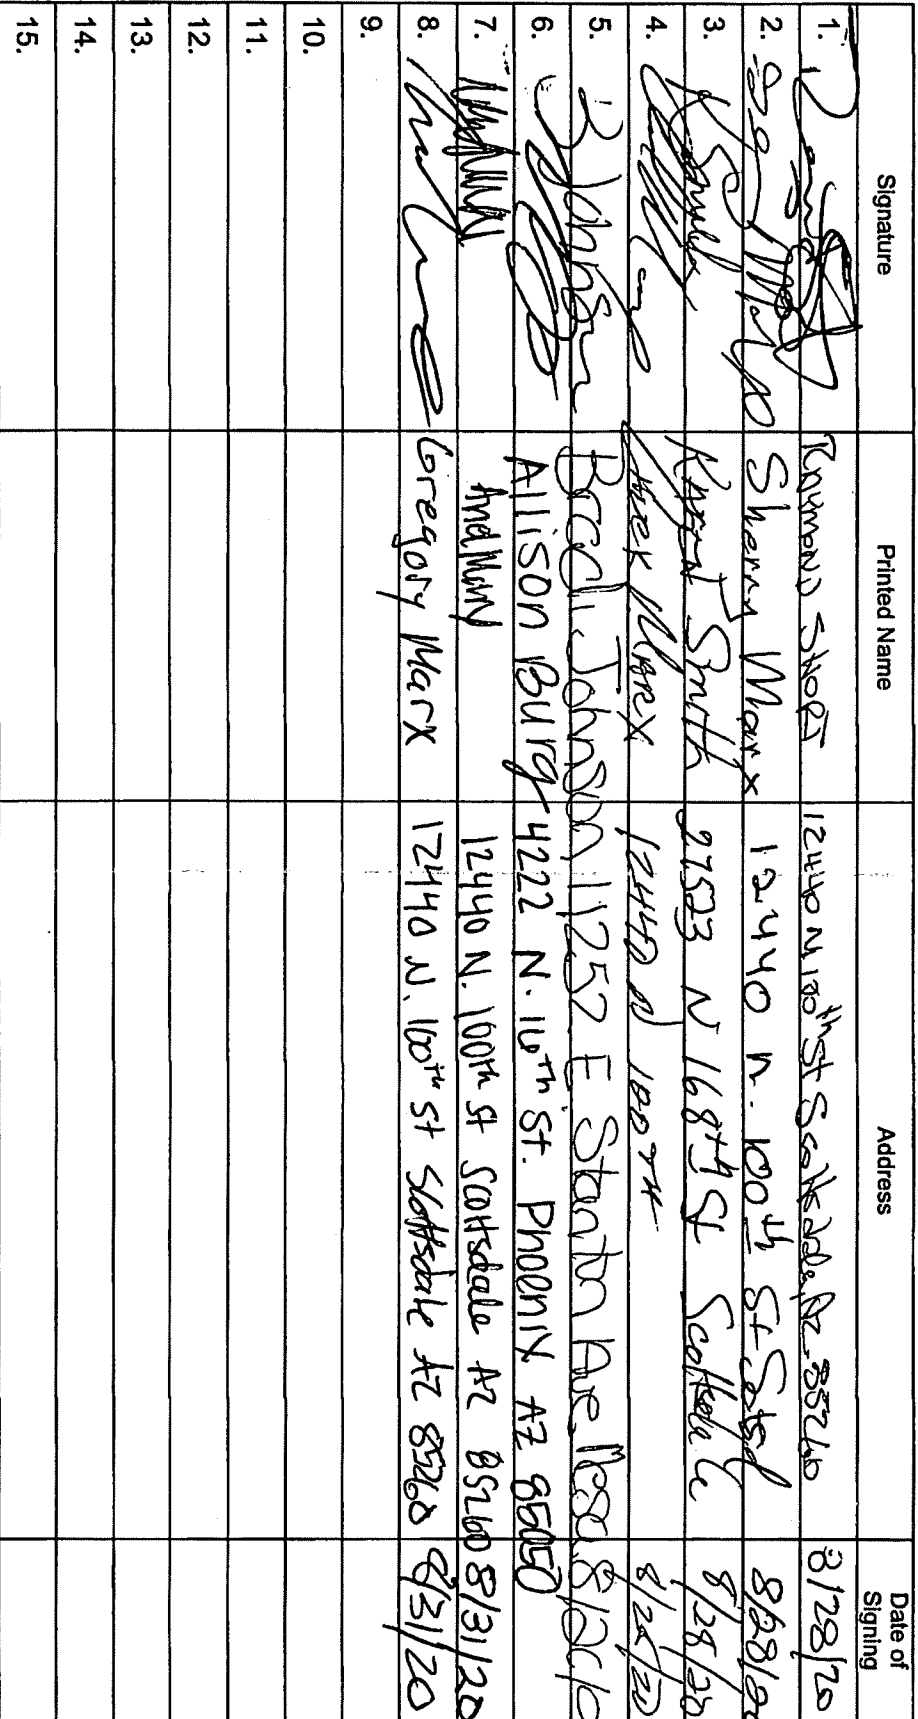 Signature Printed Name Address Date of Signing
1. Raymond Short 12440 N 100th St Scottsdale, Az. 85260 8/28/20
2. Sherry Marx 12440 n. 100th St. 8/28/20
3. K Smith Smith 27523 N 168th St Scottsdale 8/28/20
4. Marx 12440 N 100TH 8/28/20
5. B Johnson Brad Johnson 11252 E Stanton Ave Mesa
6. Allison Burg 4222 N. 16th St. Phoenix AZ 85050
7. 12440 N. 100th St Scottsdale AZ 85260 8/31/20
8. Gregory Marx 12440 N. 100th St Scottsdale AZ 85260 8/31/20
9.
10.
11.
12.
13.
14.
15.